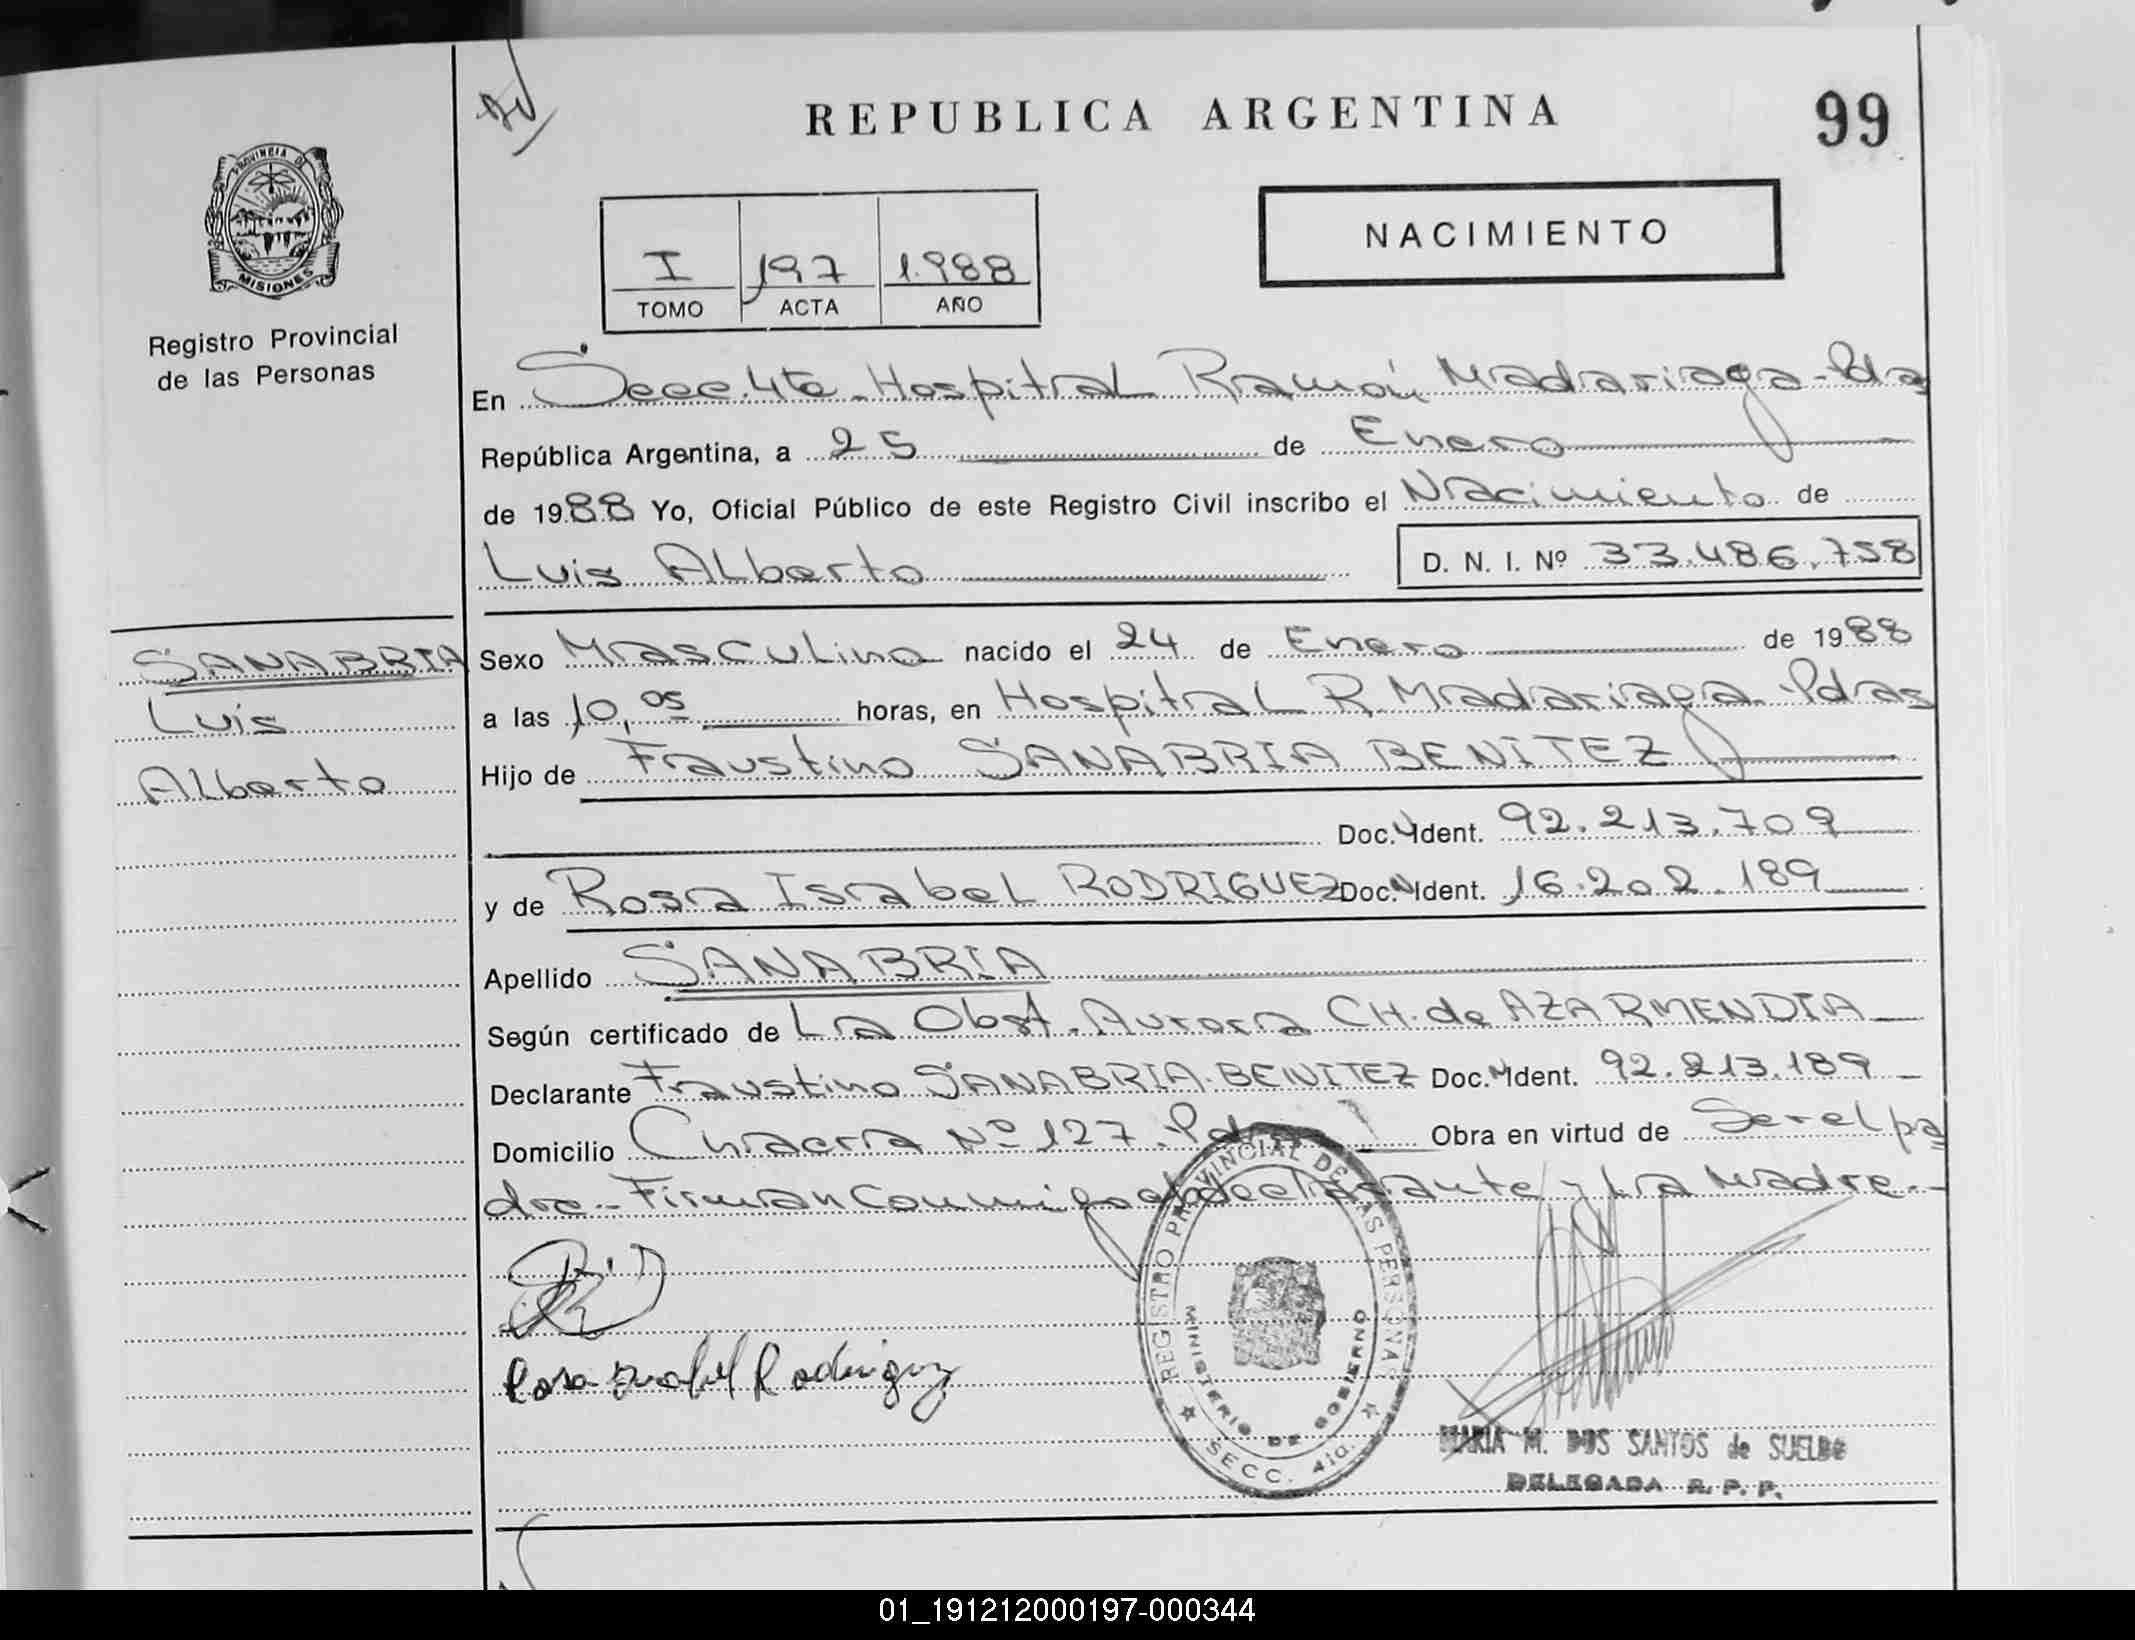 REPUBLICA ARGENTINA
99
PROVINCIA DE
MISIONES
Registro Provincial
de las Personas
I 197 1.988
TOMO ACTA AÑO
NACIMIENTO
En Secc. 4ta. Hospital Ramón Madariaga - Pdas
República Argentina, a 25 de Enero
de 1988 Yo, Oficial Público de este Registro Civil inscribo el Nacimiento de
Luis Alberto D. N. I. Nº 33.486.758
SANABRIA
Luis
Alberto
Sexo Masculino nacido el 24 de Enero de 1988
a las 10,05 horas, en Hospital R. Madariaga - Pdas
Hijo de Faustino SANABRIA BENITEZ
Doc. Ident. 92.213.709
y de Rosa Isabel RODRIGUEZ Doc. Ident. 16.202.189
Apellido SANABRIA
Según certificado de La Obst. Aurora CH. de AZARMENDIA
Declarante Faustino SANABRIA BENITEZ Doc. Ident. 92.213.189
Domicilio Chacra Nº 127 - Pdas Obra en virtud de Ser el pa
dre.- Firman conmigo el declarante y La Madre.-
Rosa Isabel Rodriguez
REGISTRO PROVINCIAL DE LAS PERSONAS
MINISTERIO DE GOBIERNO
SECC. 4ta.
MARIA M. DOS SANTOS de SUELDO
DELEGADA R. P. P.
01_191212000197-000344